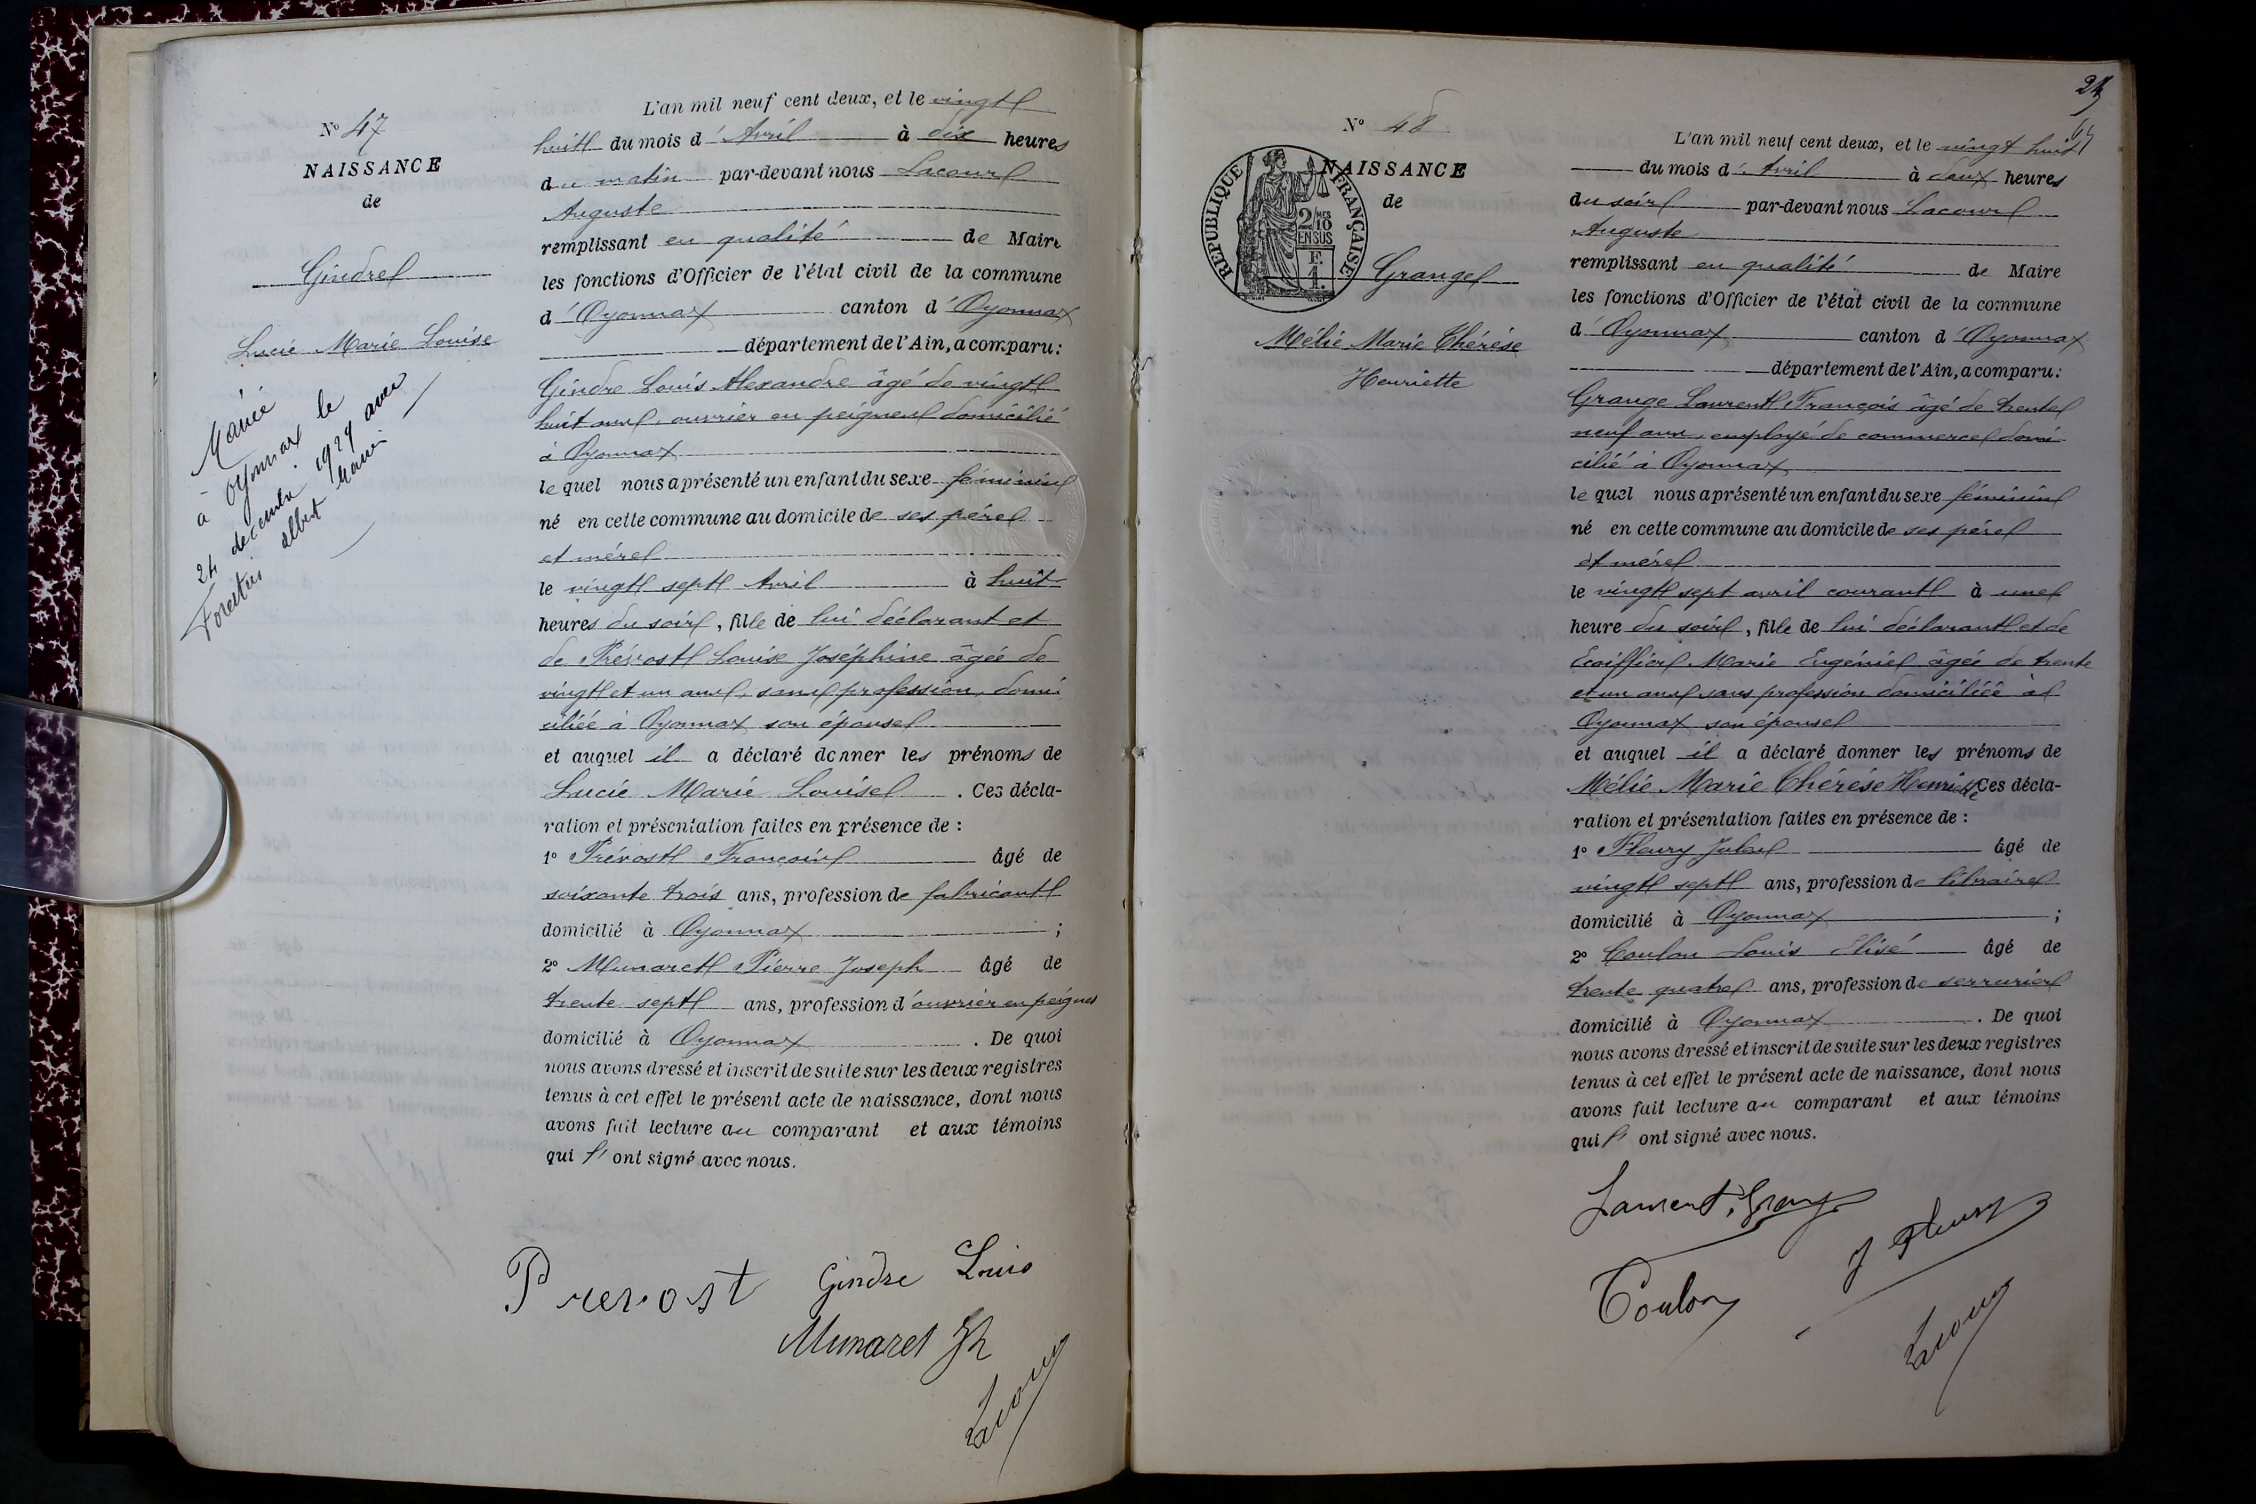 Nº 47
NAISSANCE
de
Gindre
Lucie Marie Louise
Mariée
à Oyonnax le
24 décembre 1929 avec
albert Marin
L'an mil neuf cent deux, et le vingt
huit du mois d'Avril à dix heures
du matin par-devant nous Lacour
Auguste
remplissant en qualité de Maire
les fonctions d'Officier de l'état civil de la commune
d'Oyonnax canton d'Oyonnax
département de l'Ain, a comparu:
Gindre Louis Alexandre âgé de vingt
huit ans, ouvrier en peignes domicilié
à Oyonnax
le quel nous a présenté un enfant du sexe féminin
né en cette commune au domicile de ses père
et mère
le vingt sept Avril à huit
heures du soir, fille de lui déclarant et
de Prévost Louise Joséphine âgée de
vingt et un ans, sans profession, domi
ciliée à Oyonnax son épouse
et auquel il a déclaré donner les prénoms de
Lucie Marie Louise. Ces décla-
ration et présentation faites en présence de :
1º Prévost François âgé de
soixante trois ans, profession de fabricant
domicilié à Oyonnax ;
2º Munaret Pierre Joseph âgé de
trente sept ans, profession d'ouvrier en peignes
domicilié à Oyonnax. De quoi
nous avons dressé et inscrit de suite sur les deux registres
tenus à cet effet le présent acte de naissance, dont nous
avons fait lecture au comparant et aux témoins
qui l' ont signé avec nous.
Prevost Gindre Louis
Munaret Jh
Lacour
24
Nº 48
NAISSANCE
de
RÉPUBLIQUE FRANÇAISE
2/10 MES
EN SUS
F.
1.
Grange
Mélie Marie Thérèse
Henriette
L'an mil neuf cent deux, et le vingt huit
du mois d'Avril à deux heures
du soir par-devant nous Lacour
Auguste
remplissant en qualité de Maire
les fonctions d'Officier de l'état civil de la commune
d'Oyonnax canton d'Oyonnax
département de l'Ain, a comparu:
Grange Laurent François âgé de trente
neuf ans, employé de commerce domi
cilié à Oyonnax
le quel nous a présenté un enfant du sexe féminin
né en cette commune au domicile de ses père
et mère
le vingt sept avril courant à une
heure du soir, fille de lui déclarant et de
Ecoiffier Marie Eugénie âgée de trente
et un ans sans profession domiciliée à
Oyonnax son épouse
et auquel il a déclaré donner les prénoms de
Mélie Marie Thérèse Henriette Ces décla-
ration et présentation faites en présence de :
1º Fleury Jules âgé de
vingt sept ans, profession de libraire
domicilié à Oyonnax ;
2º Coulon Louis Elisé âgé de
trente quatre ans, profession de serrurier
domicilié à Oyonnax. De quoi
nous avons dressé et inscrit de suite sur les deux registres
tenus à cet effet le présent acte de naissance, dont nous
avons fait lecture au comparant et aux témoins
qui l' ont signé avec nous.
Laurent Grange
J Fleury
Coulon
Lacour